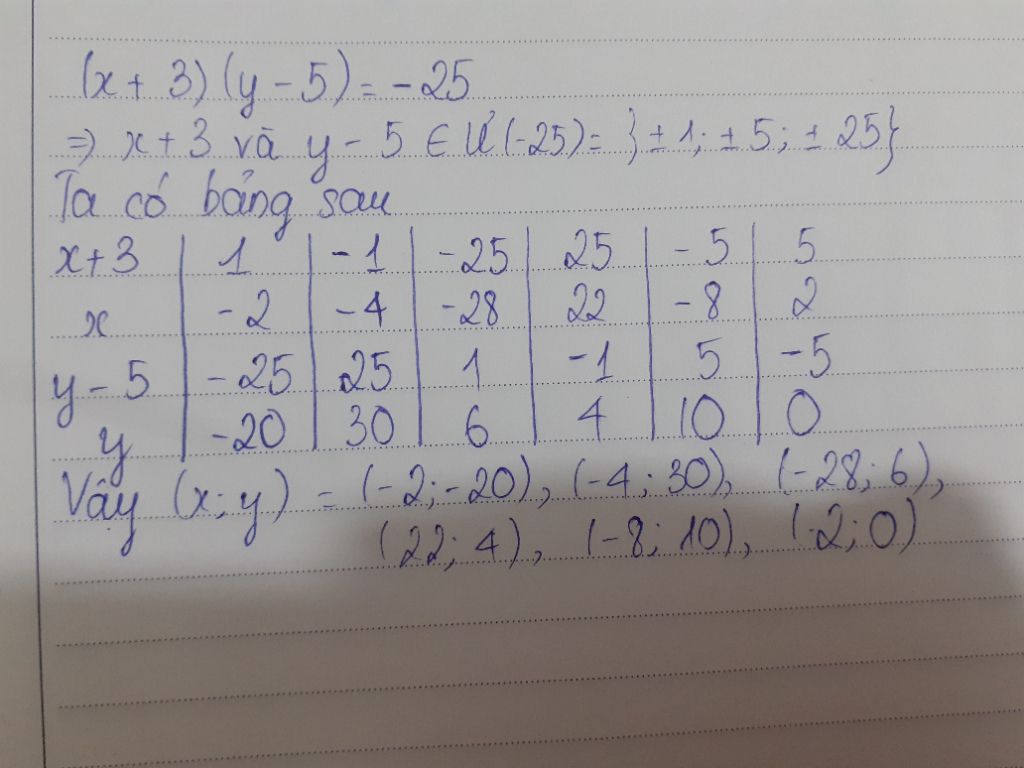 (x + 3) (y - 5) = - 25
=> x + 3 và y - 5 ∈ Ư (-25) = } ± 1; ± 5; ± 25}
Ta có bảng sau
x+3 | 1 | - 1 | - 25 | 25 | - 5 | 5
x | - 2 | - 4 | - 28 | 22 | - 8 | 2
y - 5 | - 25 | 25 | 1 | - 1 | 5 | - 5
y | - 20 | 30 | 6 | 4 | 10 | 0
Vậy (x; y) = (-2; -20), (-4; 30), (-28; 6),
(22; 4), (-8; 10), (2; 0)